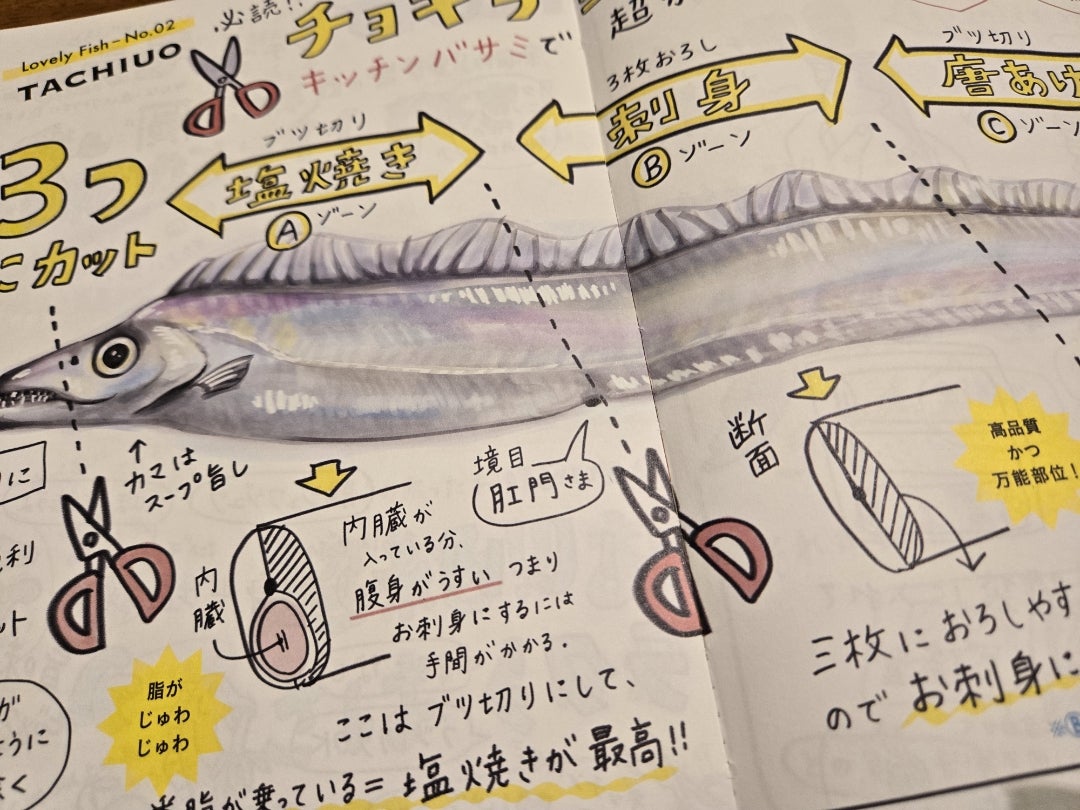 Lovely Fish-No.02
TACHIUO
必読!!
チョキ
キッチンバサミで
3つ
にカット
ブツ切り
塩焼き
Aゾーン
3枚おろし
刺身
Bゾーン
ブツ切り
唐あげ
Cゾーン
カマは
スープ旨し
境目
肛門さま
内臓
内臓が
入っている分、
腹身がうすい つまり
お刺身にするには
手間がかかる.
脂が
じゅわ
じゅわ
ここは ブツ切りにして、
脂が乗っている=塩焼きが最高!!
断面
高品質
かつ
万能部位!
三枚におろしやす
ので お刺身に